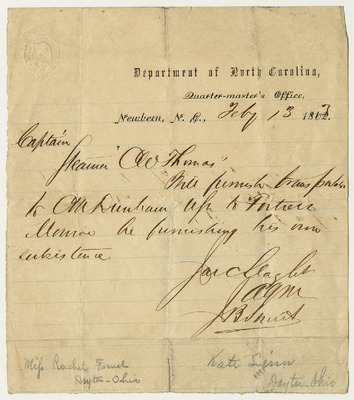 Department of North Carolina,
Quarter-master's Office,
Newbern, N. C., Feby 13 1863
Captain
Steamer "C W Thomas"
Will furnish transportation
to C M Dunham up to Fortress
Monroe he furnishing his own
subsistence
Jas C Slaght
J B
Miss Rachel French
Dayton-Ohio
Kate
Dayton-Ohio